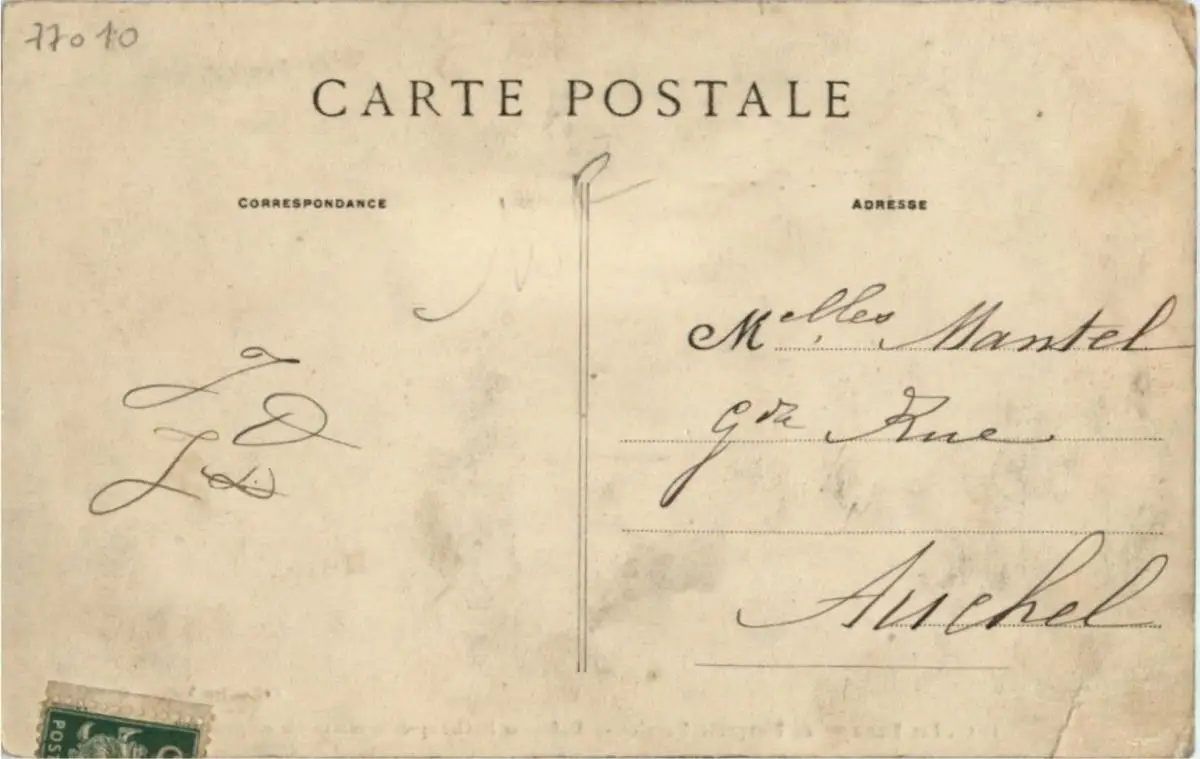 77010
CARTE POSTALE
CORRESPONDANCE
ADRESSE
Melles Mantel
Gde Rue
Auchel
POST